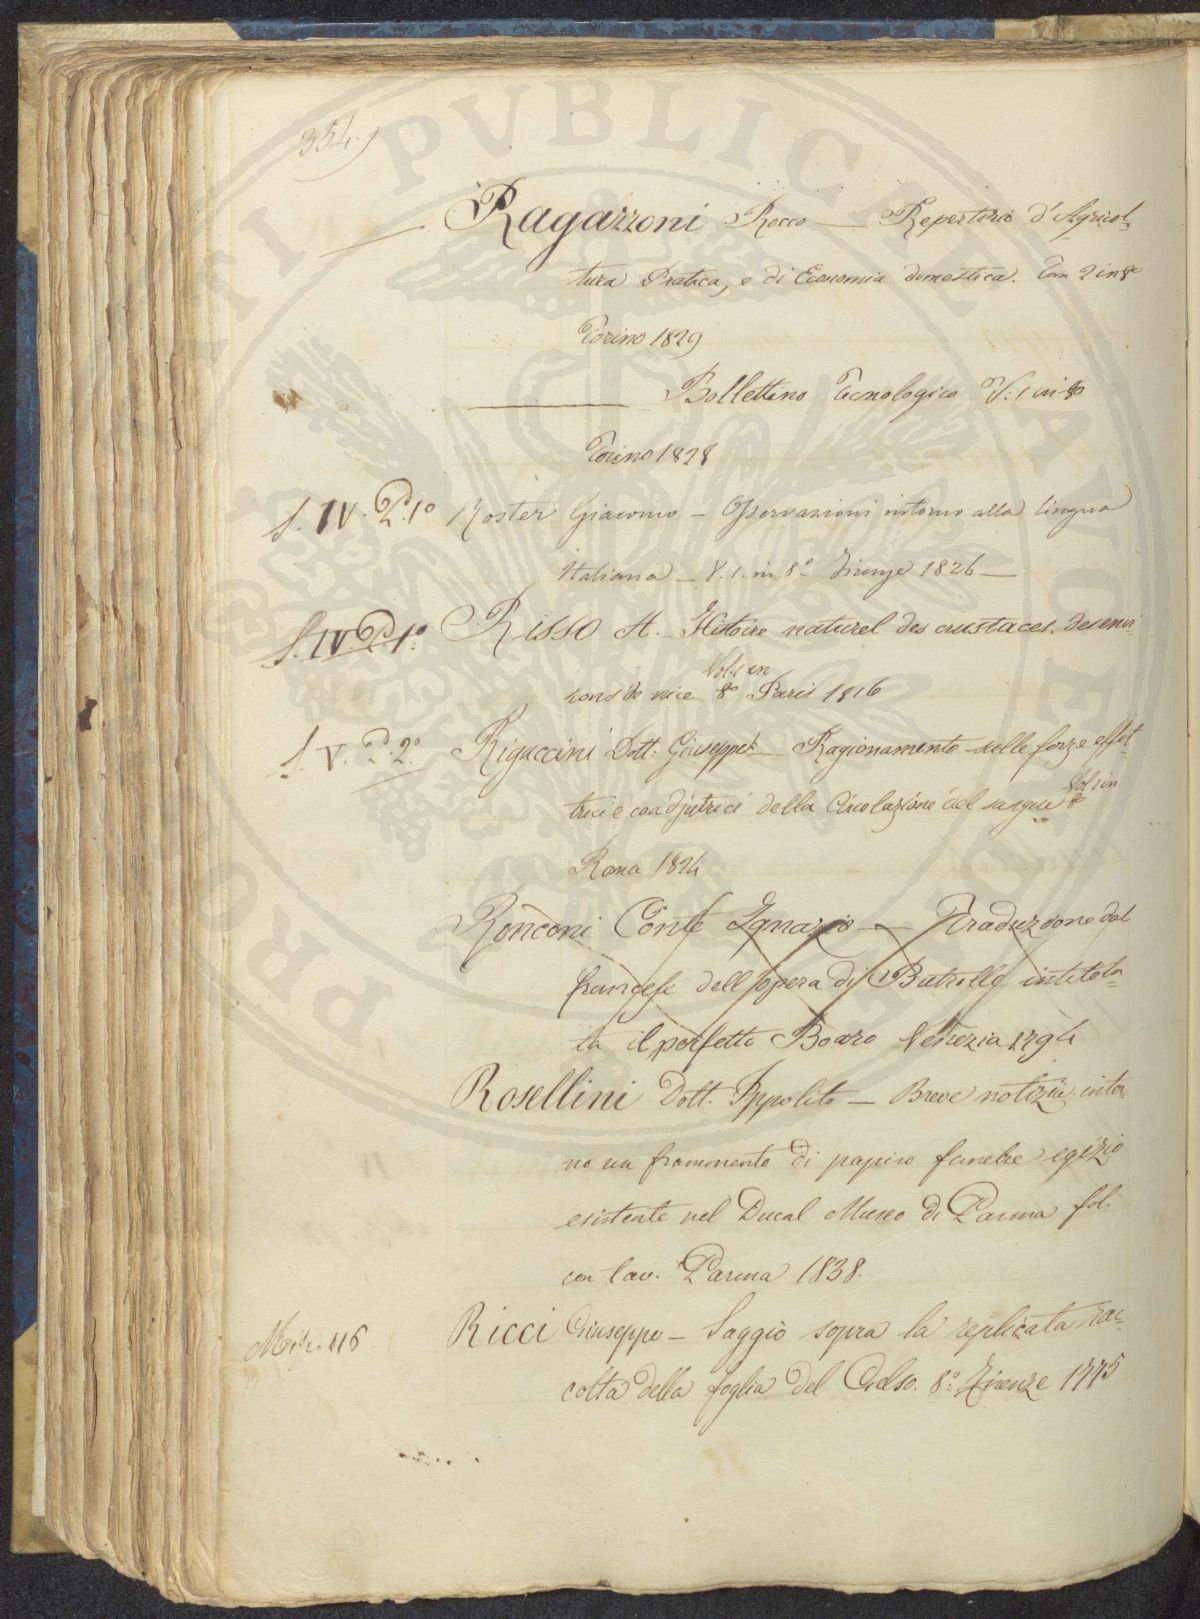 354.)
Ragazzoni Rocco — Repertorio d'Agricol-
tura Pratica, e di Economia domestica. Tom 2 in 8°
Torino 1829
——— Bollettino Tecnologico V: 1 in 8°
Torino 1828
S. IV. P. 1° Roster Giacomo — Osservazioni intorno alla lingua
Italiana — V. 1. in 8° Firenze 1826 —
S. IV. P. 1° Risso A. Histoire naturel des crustaces. des envi-
Vol. 1 en
rons de nice 8° Paris 1816
S. V. P. 2° Rigaccini Dott: Giuseppe — Ragionamento sulle forze effet-
Vol 1 in
trici e coadjutrici della Circolazione del sangue 8°
Roma 1824
Ronconi Conte Ignazio — Traduzione dal
francese dell'opera di Butrolle intitola-
ta il perfetto Boaro Venezia 1794
Rosellini Dott. Ippolito — Breve notizie intor-
no un frammento di papiro funebre egizio
esistente nel Ducal Museo di Parma fol.
con tav. Parma 1838.
Misc. 116 Ricci Giuseppe — Saggio sopra la replicata rac-
colta della foglia del Gelso. 8° Firenze 1775
PUBLICI